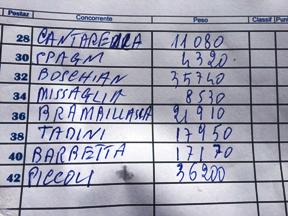 Postaz Concorrente Peso Classif Punt
28 CANTARELLA 11080
30 SPAGNI 4320
32 BOSCHIAN 35740
34 MISSAGLIA 8530
36 BRAMBILLASCA 21910
38 TADINI 17950
40 BARBETTA 17170
42 PICCOLI 36200